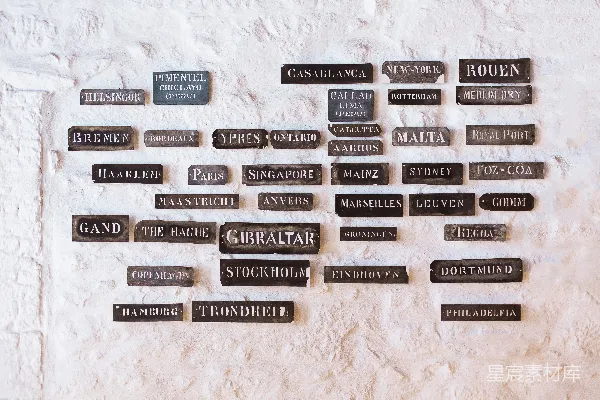 CASABLANCA
NEW-YORK
ROUEN
PIMENTEL
CHICLAYO
HELSINGOR
CALLAO
LIMA
ROTTERDAM
MEDIUM DRY
BREMEN
BORDEAUX
YPRES
ONTARIO
CALCUTTA
AARHUS
MALTA
ROYAL PORT
HAARLEM
PARIS
SINGAPORE
MAINZ
SYDNEY
FOZ-COA
MAASTRICHT
ANVERS
MARSEILLES
LEUVEN
GODIM
GAND
THE HAGUE
GIBRALTAR
GRONINGEN
REGOA
COPENHAGEN
STOCKHOLM
EINDHOVEN
DORTMUND
HAMBURG
TRONDHEIM
PHILADELFIA
星宸素材库